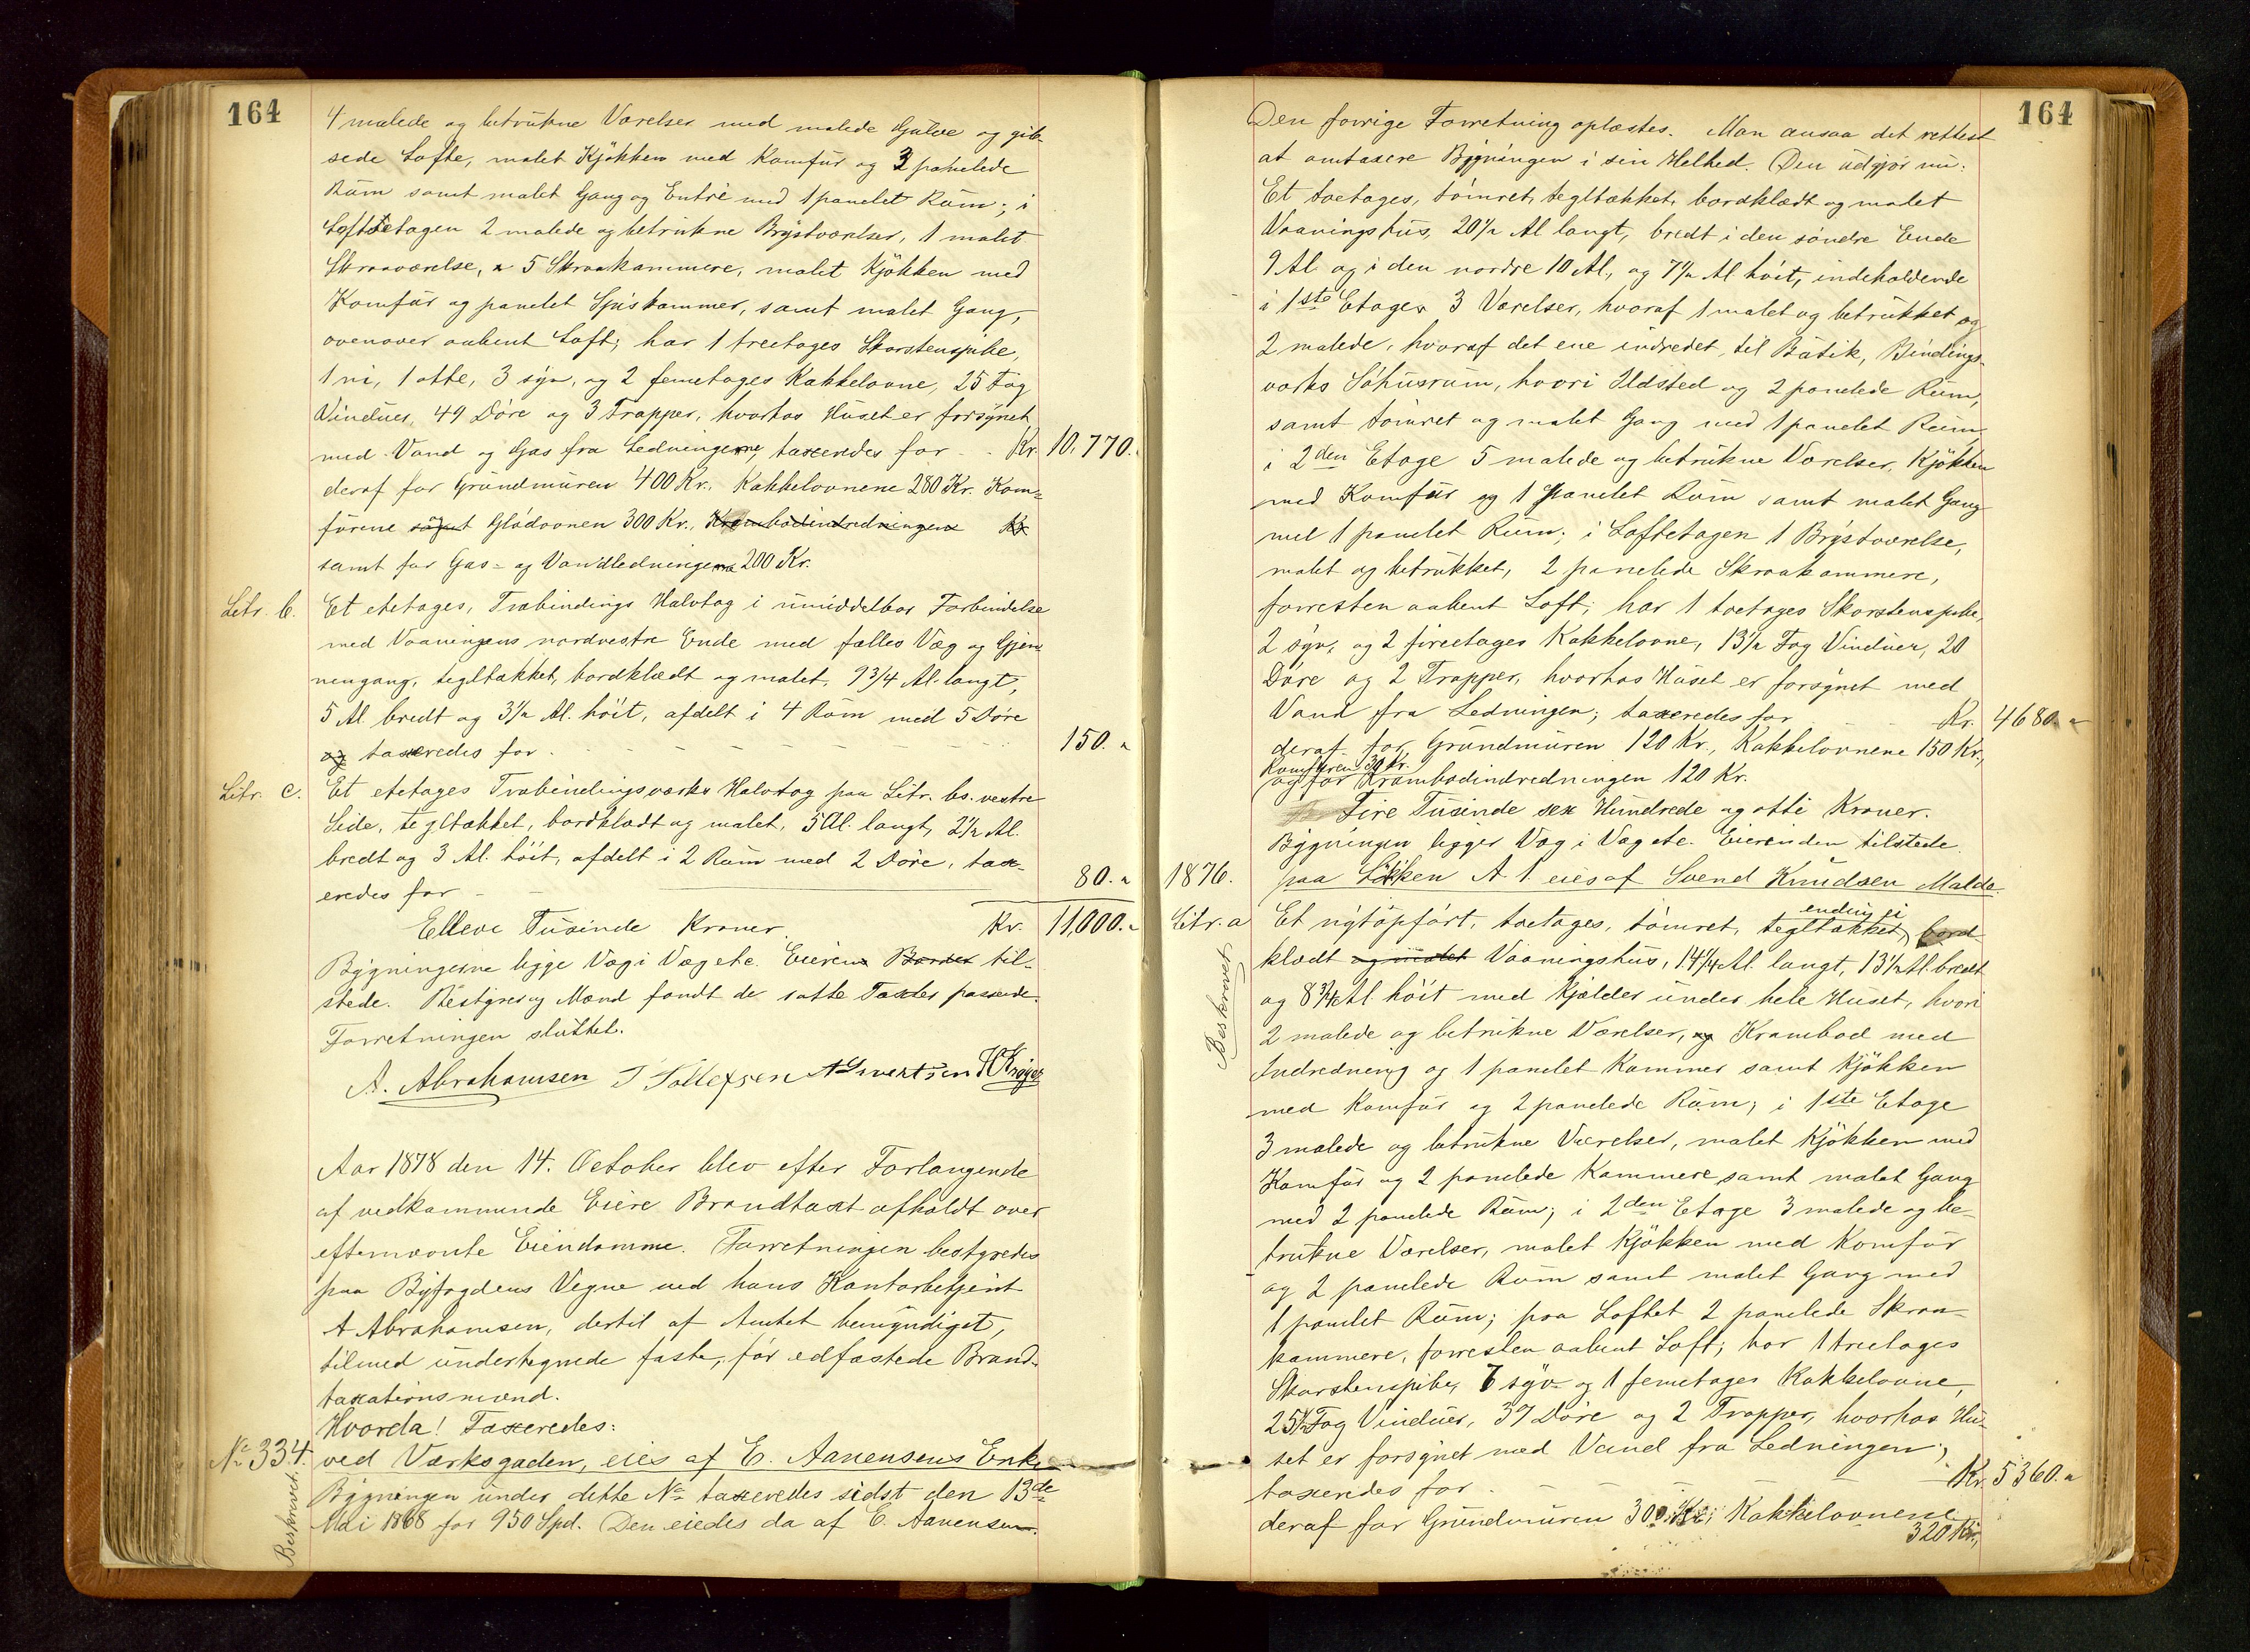 164
4 malede og betrukne Værelser med malede Gulve og gib-
sede Lofte, malet Kjøkken med Komfur og 3 panelede
Rum samt malet Gang og Entré med 1 panelet Rum; i
Loftetagen 2 malede og betrukne Brystværelser, 1 malet
Skraaværelse, 5 Skraakammere, malet Kjøkken med
Komfur og panelet Spiskammer, samt malet Gang,
ovenover aabent Loft; har 1 treetages Skorstenspibe,
1 ni, 1 otte, 3 syv, og 2 femetages Kakkelovne, 25 Fag
Vinduer, 49 Døre og 3 Trapper, hvorhos Huset er forsynet
med Vand og Gas fra Ledningerne, taxeredes for - - Kr. 10,770.
deraf for Grundmuren 400 Kr. Kakkelovnene 280 Kr. Kom-
furene samt Glødovnen 300 Kr., Krambodindredningen Kr
samt for Gas- og Vandledningerne 200 Kr.
Litr. b. Et etetages, Træbindings Halvtag i umiddelbar Forbindelse
med Vaaningens nordvestre Ende med fælles Væg og Gjen-
nemgang, tegltækket, bordklædt og malet, 9 3/4 Al. langt,
5 Al. bredt og 3 1/2 Al. høit, afdelt i 4 Rum med 5 Døre
og taxeredes for - - - - - - 150. "
Litr. c. Et etetages Træbindingsværks Halvtag paa Litr. bs. vestre
Side, tegltækket, bordklædt og malet, 5 Al. langt, 2 1/2 Al.
bredt og 3 Al. høit, afdelt i 2 Rum med 2 Døre, tax-
eredes for - - 80. "
Elleve Tusinde Kroner. Kr. 11,000. "
Bygningerne ligge Væg i Væg etc. Eieren Bordet til-
stede. Bestyrer og Mænd fandt de satte Taxter passende.
Forretningen sluttet.
A. Abrahamsen T Tollefsen H Krøger
Aar 1878 den 14. October blev efter Forlangende
af vedkommende Eiere Brandtaxt afholdt over
efternævnte Eiendomme. Forretningen bestyredes
paa Byfogdens Vegne ved hans Kontorbetjent
A Abrahamsen, dertil af Amtet bemyndiget,
tilmed undertegnede faste, før edfæstede Brand-
taxationsmænd.
Hvorda! Taxeredes:
No 334. ved Værksgaden, eies af E. Aanensens Enke
Beskrevet.
Bygningen under dette No taxeredes sidst den 13de
Mai 1868 for 950 Spd. Den eiedes da af E. Aanensen.
164
Den forrige Forretning oplæstes. Man ansaa det rettest
at omtaxere Bygningen i sin Helhed. Den udgjør nu:
Et toetages, tømret, tegltækket, bordklædt og malet
Vaaningshus, 20 1/2 Al langt, bredt i den søndre Ende
9 Al og i den nordre 10 Al, og 7 1/2 Al høit, indeholdende
i 1ste Etage 3 Værelser, hvoraf 1 malet og betrukket og
2 malede, hvoraf det ene indredet til Butik, Bindings-
værks Søhusrum, hvori Ildsted og 2 panelede Rum,
samt tømret og malet Gang med 1 panelet Rum
i 2den Etage 5 malede og betrukne Værelser, Kjøkken
med Komfur og 1 panelet Rum samt malet Gang
med 1 panelet Rum; i Loftetagen 1 Brystværelse,
malet og betrukket, 2 panelede Skraakammere,
forresten aabent Loft; har 1 toetages Skorstenspibe,
2 syv, og 2 fireetages Kakkelovne, 13 1/2 Fag Vinduer, 20
Døre og 2 Trapper, hvorhos Huset er forsynet med
Vand fra Ledningen; taxeredes for - - Kr. 4680. "
deraf for Grundmuren 120 Kr., Kakkelovnene 150 Kr.,
Komfuren 30 Kr.
og for Krambodindredningen 120 Kr.
Fire Tusinde sex Hundrede og otti Kroner.
Bygningen ligger Væg i Væg etc. Eierinden tilstede.
1876. paa Løkken A. 1. eies af Svend Knudsen Malda.
Litr. a Et nytopført, toetages, tømret, tegltækket, endnu ei bord-
Beskrevet.
klædt og malet Vaaningshus, 14 1/4 Al. langt, 13 1/2 Al. bredt
og 8 3/4 Al. høit med Kjælder under hele Huset, hvori
2 malede og betrukne Værelser, og Krambod med
Indredning og 1 panelet Kammer samt Kjøkken
med Komfur og 2 panelede Rum; i 1ste Etage
3 malede og betrukne Værelser, malet Kjøkken med
Komfur og 2 panelede Kammere samt malet Gang
med 2 panelede Rum; i 2den Etage 3 malede og be-
trukne Værelser, malet Kjøkken med Komfur
og 2 panelede Rum samt malet Gang med
1 panelet Rum; paa Loftet 2 panelede Skraa-
kammere, forresten aabent Loft; har 1 treetages
Skorstenspibe, 7 syv- og 1 femetages Kakkelovne,
25 1/2 Fag Vinduer, 37 Døre og 2 Trapper, hvorhos Hu-
set er forsynet med Vand fra Ledningen;
taxeredes for - - - - Kr. 5360. "
deraf for Grundmuren 300 Kr., Kakkelovnene
320 Kr.,